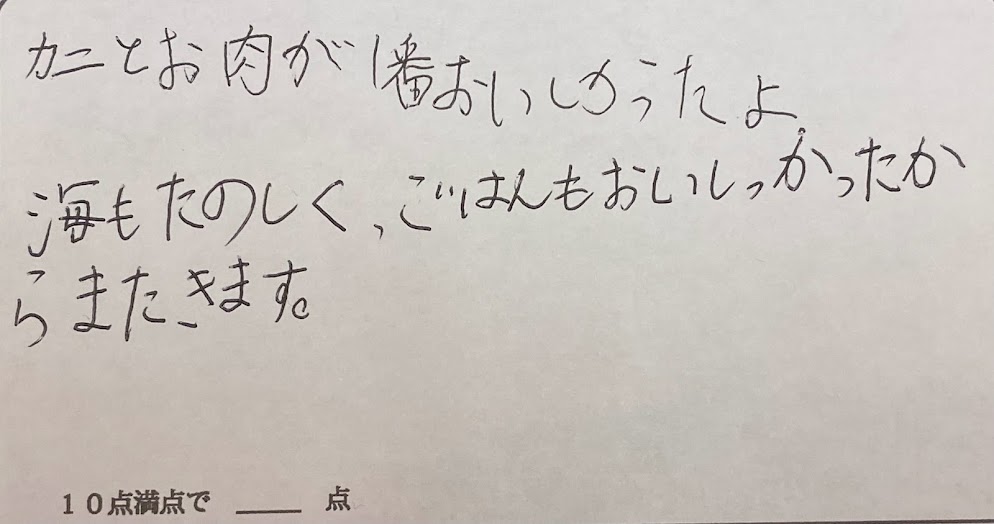 カニとお肉が1番おいしかったよ。
海もたのしく、ごはんもおいしっかったか
らまたきます。
10点満点で ____ 点